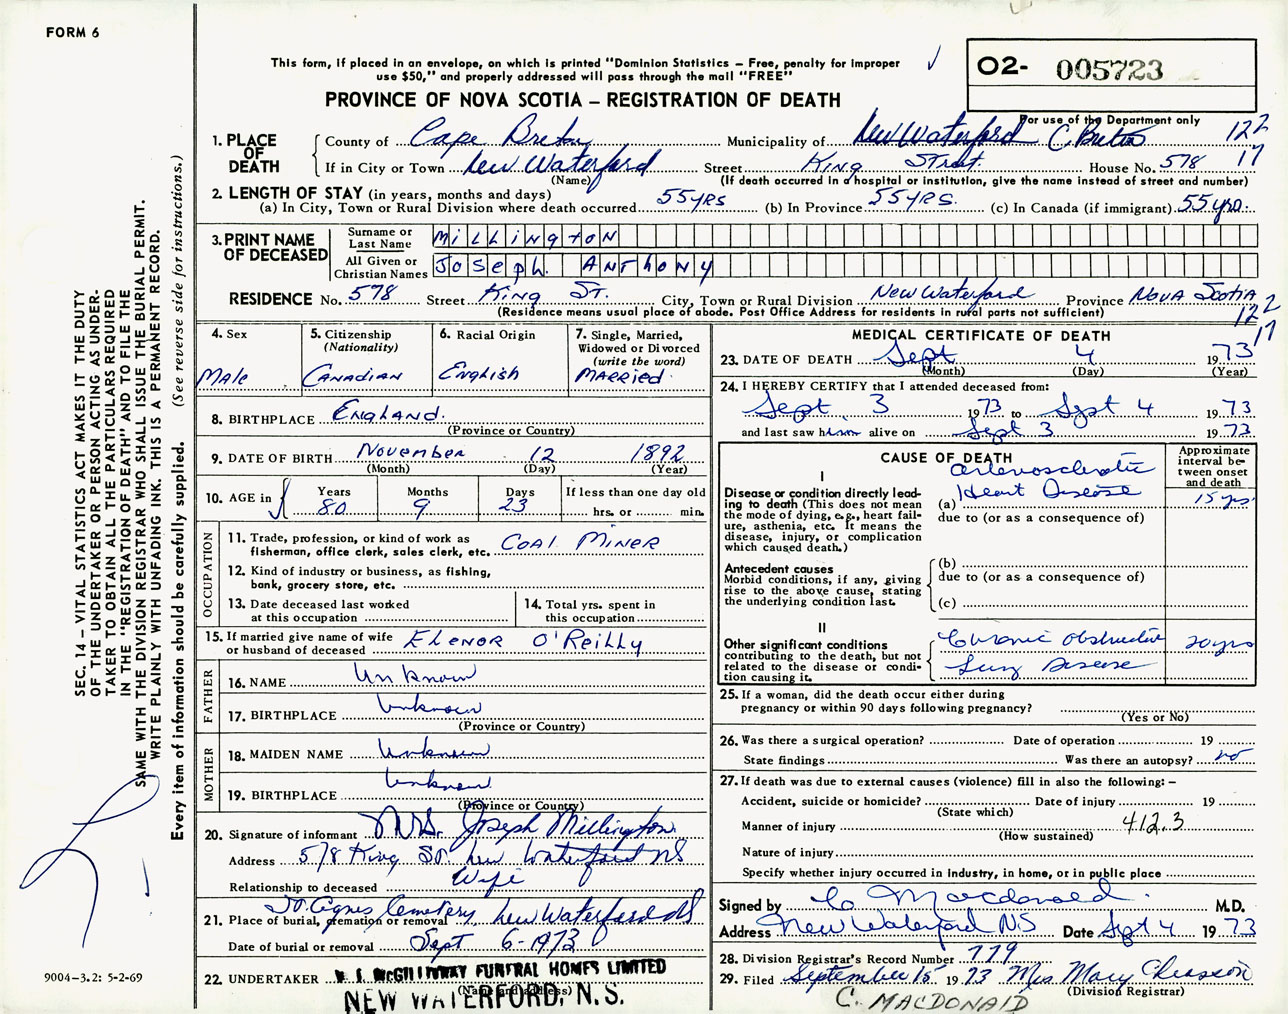 FORM 6
This form, if placed in an envelope, on which is printed "Dominion Statistics – Free, penalty for improper
use $50," and properly addressed will pass through the mail "FREE"
PROVINCE OF NOVA SCOTIA – REGISTRATION OF DEATH
O2- 005723
For use of the Department only
122
17
1. PLACE OF DEATH
County of Cape Breton Municipality of New Waterford C. Breton
If in City or Town New Waterford Street King Street House No. 578
(Name) (If death occurred in a hospital or institution, give the name instead of street and number)
2. LENGTH OF STAY (in years, months and days)
(a) In City, Town or Rural Division where death occurred 55 yrs (b) In Province 55 yrs. (c) In Canada (if immigrant) 55 yrs.
3. PRINT NAME OF DECEASED
Surname or Last Name MILLINGTON
All Given or Christian Names JOSEPH ANTHONY
RESIDENCE No. 578 Street King St. City, Town or Rural Division New Waterford Province Nova Scotia
(Residence means usual place of abode. Post Office Address for residents in rural parts not sufficient)
122
17
4. Sex
Male
5. Citizenship
(Nationality)
Canadian
6. Racial Origin
English
7. Single, Married,
Widowed or Divorced
(write the word)
Married
8. BIRTHPLACE England
(Province or Country)
9. DATE OF BIRTH November 12 1892
(Month) (Day) (Year)
10. AGE in
Years Months Days If less than one day old
80 9 23 hrs. or min.
OCCUPATION
11. Trade, profession, or kind of work as
fisherman, office clerk, sales clerk, etc. Coal Miner
12. Kind of industry or business, as fishing,
bank, grocery store, etc.
13. Date deceased last worked
at this occupation
14. Total yrs. spent in
this occupation
15. If married give name of wife
or husband of deceased Elenor O'Reilly
FATHER
16. NAME Unknown
17. BIRTHPLACE Unknown
(Province or Country)
MOTHER
18. MAIDEN NAME Unknown
19. BIRTHPLACE Unknown
(Province or Country)
20. Signature of informant Mrs. Joseph Millington
Address 578 King St. New Waterford NS
Relationship to deceased Wife
21. Place of burial, cremation or removal St. Agnes Cemetery New Waterford NS
Date of burial or removal Sept 6-1973
22. UNDERTAKER McGILLIVRAY FUNERAL HOMES LIMITED
(Name and address)
NEW WATERFORD, N. S.
MEDICAL CERTIFICATE OF DEATH
23. DATE OF DEATH Sept 4 1973
(Month) (Day) (Year)
24. I HEREBY CERTIFY that I attended deceased from:
Sept 3 1973 to Sept 4 1973
and last saw him alive on Sept 3 1973
CAUSE OF DEATH
Approximate
interval be-
tween onset
and death
I
Disease or condition directly lead-
ing to death (This does not mean
the mode of dying, e.g., heart fail-
ure, asthenia, etc. It means the
disease, injury, or complication
which caused death.)
Arteriosclerotic
(a) Heart Disease 15 yrs
due to (or as a consequence of)
Antecedent causes
Morbid conditions, if any, giving
rise to the above cause, stating
the underlying condition last.
(b)
due to (or as a consequence of)
(c)
II
Other significant conditions
contributing to the death, but not
related to the disease or condi-
tion causing it.
Chronic obstructive 20 yrs
Lung Disease
25. If a woman, did the death occur either during
pregnancy or within 90 days following pregnancy?
(Yes or No)
26. Was there a surgical operation? Date of operation 19
State findings Was there an autopsy? no
27. If death was due to external causes (violence) fill in also the following: –
Accident, suicide or homicide? Date of injury 19
(State which)
Manner of injury 412.3
(How sustained)
Nature of injury
Specify whether injury occurred in industry, in home, or in public place
Signed by C Macdonald M.D.
Address New Waterford N.S Date Sept 4 1973
28. Division Registrar's Record Number 779
29. Filed September 15 1973 Mrs Mary Chiasson
(Division Registrar)
C. MACDONALD
SEC. 14 – VITAL STATISTICS ACT MAKES IT THE DUTY
OF THE UNDERTAKER OR PERSON ACTING AS UNDER-
TAKER TO OBTAIN ALL THE PARTICULARS REQUIRED
IN THE "REGISTRATION OF DEATH" AND TO FILE THE
SAME WITH THE DIVISION REGISTRAR WHO SHALL ISSUE THE BURIAL PERMIT.
WRITE PLAINLY WITH UNFADING INK. THIS IS A PERMANENT RECORD.
Every item of information should be carefully supplied. (See reverse side for instructions.)
9004–3.2: 5-2-69